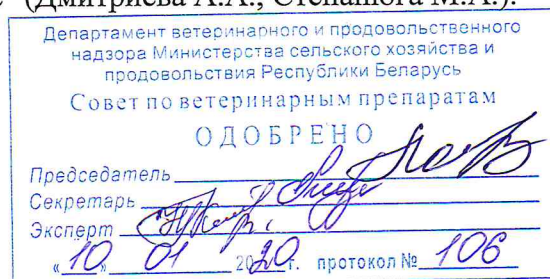 (Дмитриева А.А., Степанюга М.А.).
Департамент ветеринарного и продовольственного
надзора Министерства сельского хозяйства и
продовольствия Республики Беларусь
Совет по ветеринарным препаратам
ОДОБРЕНО
Председатель
Секретарь
Эксперт
«10» 01 2020г. протокол № 106